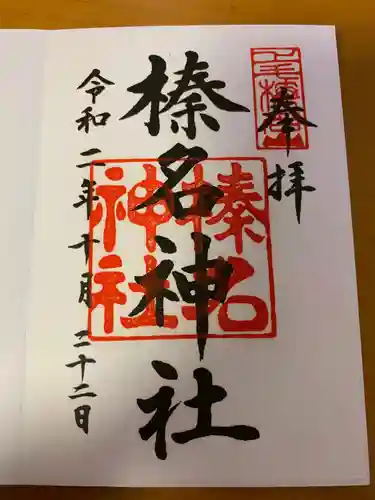 奉拝
榛名神社
令和二年十月二十二日
榛名
神社